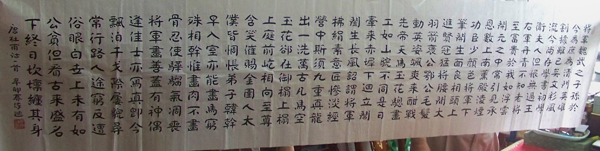 將軍魏武之子孫於
今為庶為清門英雄
割據雖已矣文彩風
流今尚存學書初學
衛夫人但恨無過王
右軍丹青不知老將
至富貴於我如浮雲
開元之中常引見承
恩數上南薰殿凌煙
功臣少顏色將軍下
筆開生面良相頭上
進賢冠猛將腰間大
羽箭褒公鄂公毛髮
動英姿颯爽來酣戰
先帝天馬玉花驄畫
工如山貌不同是日
牽來赤墀下迥立閶
闔生長風詔謂將軍
拂絹素意匠慘淡經
營中斯須九重真龍
出一洗萬古凡馬空
玉花卻在御榻上榻
上庭前屹相向至尊
含笑催賜金圉人太
僕皆惆悵弟子韓幹
早入室亦能畫馬窮
殊相幹惟畫肉不畫
骨忍使驊騮氣凋喪
將軍畫善蓋有神偶
逢佳士亦寫真即今
飄泊干戈際屢貌尋
常行路人途窮反遭
俗眼白世上未有如
公貧但看古來盛名
下終日坎壈纏其身
唐杜甫詩